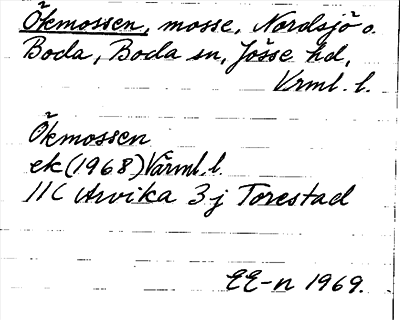 Ökmossen, mosse, Nordsjö o.
Boda, Boda sn, Jösse hd,
Vrml. l.
Ökmossen
ek (1968) Värml. l.
11C Arvika 3j Torestad
EE-n 1969.